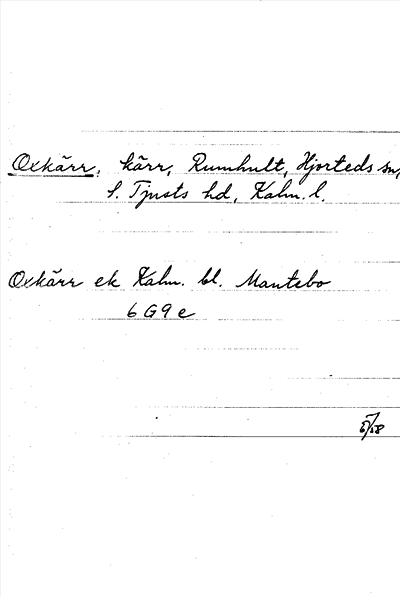 Oxkärr, kärr, Rumhult, Hjorteds sn,
S. Tjusts hd, Kalm. l.
Oxkärr ek Kalm. bl. Mantebo
6 G 9 e